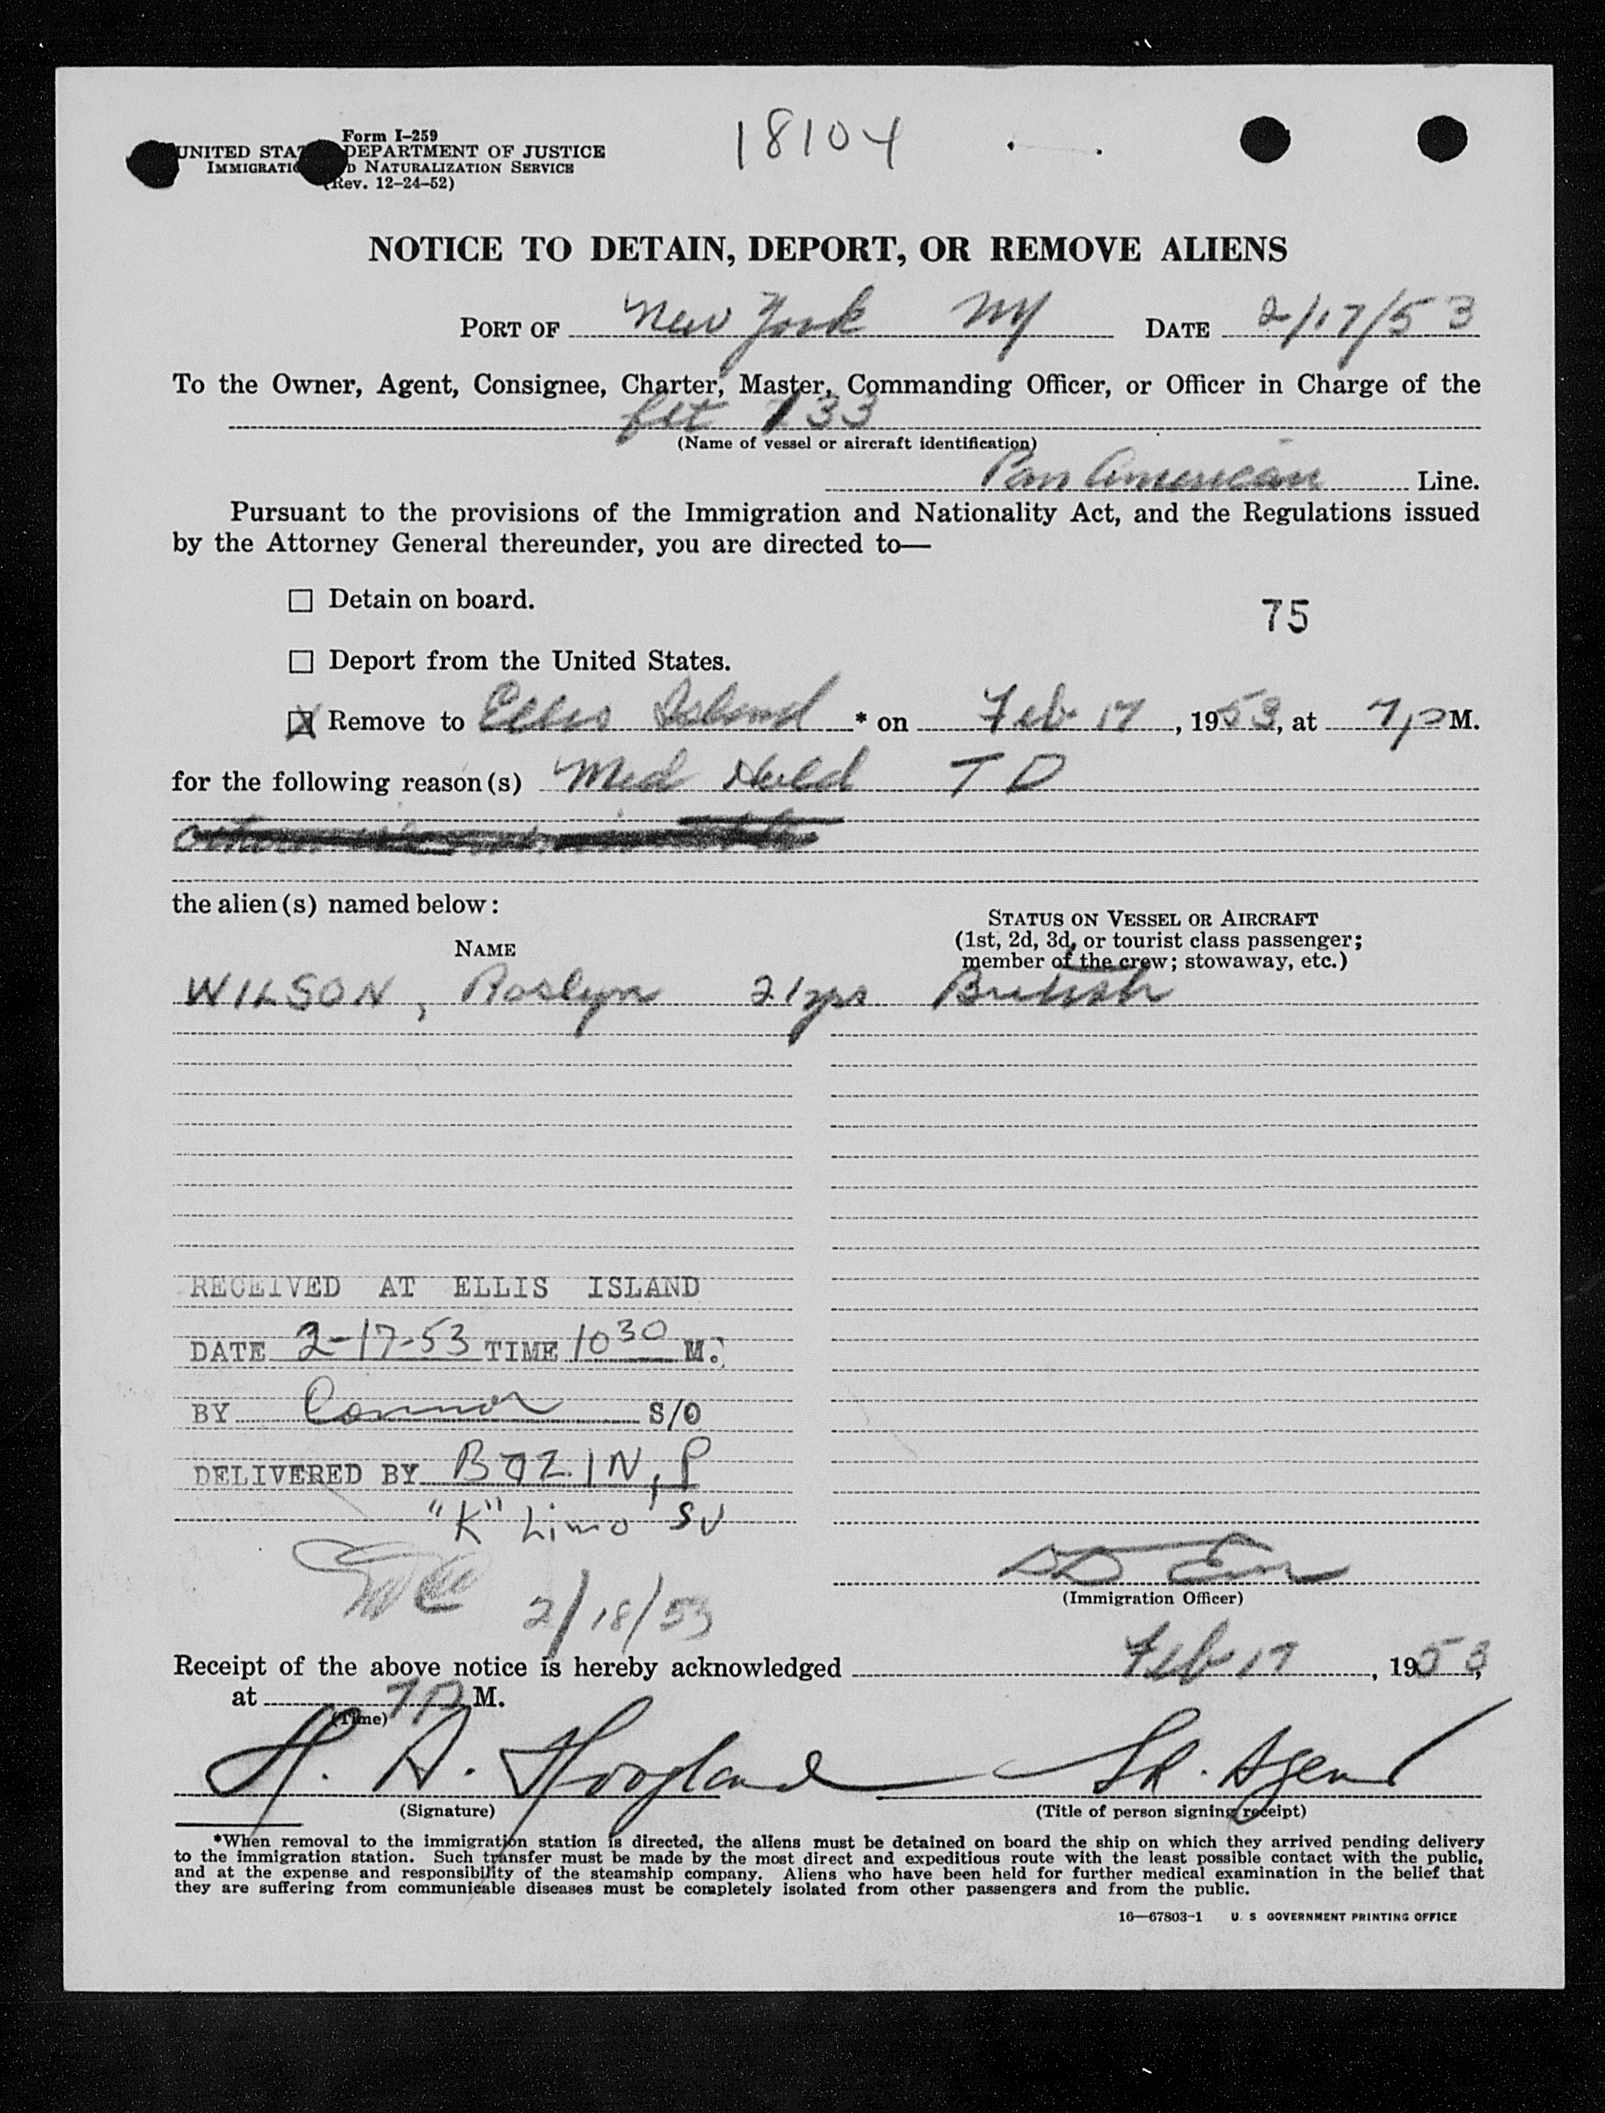 18104
Form I-259
UNITED STA DEPARTMENT OF JUSTICE
IMMIGRATIO D NATURALIZATION SERVICE
(Rev. 12-24-52)
NOTICE TO DETAIN, DEPORT, OR REMOVE ALIENS
PORT OF New York NY DATE 2/17/53
To the Owner, Agent, Consignee, Charter, Master, Commanding Officer, or Officer in Charge of the
flt 133
(Name of vessel or aircraft identification)
Pan American Line.
Pursuant to the provisions of the Immigration and Nationality Act, and the Regulations issued
by the Attorney General thereunder, you are directed to—
☐ Detain on board.
75
☐ Deport from the United States.
☒ Remove to Ellis Island * on Feb 17, 1953, at 7 p M.
for the following reason(s) Med Held T D
the alien(s) named below:
NAME
STATUS ON VESSEL OR AIRCRAFT
(1st, 2d, 3d, or tourist class passenger;
member of the crew; stowaway, etc.)
WILSON, Roslyn 21 yrs British
RECEIVED AT ELLIS ISLAND
DATE 2-17-53 TIME 10 30 M.
BY Connor S/O
DELIVERED BY BOZIN, P
"K" Limo SV
(Immigration Officer)
2/18/53
Receipt of the above notice is hereby acknowledged Feb 17, 1953,
at 7 P M.
(Time)
H. A. Hoogland Sr. Agent
(Signature) (Title of person signing receipt)
*When removal to the immigration station is directed, the aliens must be detained on board the ship on which they arrived pending delivery
to the immigration station. Such transfer must be made by the most direct and expeditious route with the least possible contact with the public,
and at the expense and responsibility of the steamship company. Aliens who have been held for further medical examination in the belief that
they are suffering from communicable diseases must be completely isolated from other passengers and from the public.
16—67803-1 U. S. GOVERNMENT PRINTING OFFICE